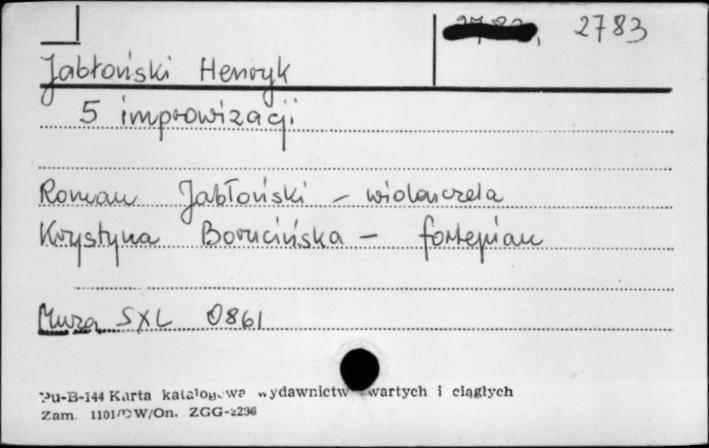 2783
Jabłoński Henryk
5 improwizacji
Roman Jabłoński – wiolonczela
Krystyna Borucińska – fortepian
Muza SXL 0861
Pu-B-144 Karta katalogowa wydawnictw zwartych i ciągłych
Zam. 1101/DW/On. ZGG-2296